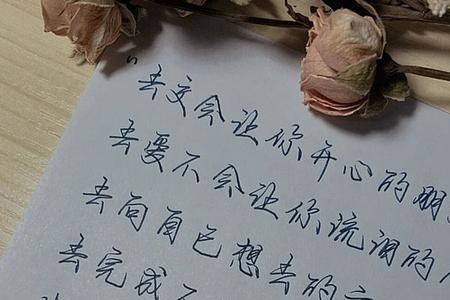 “去交会让你开心的朋
去爱不会让你流泪的
去向自己想去的方
去完成不